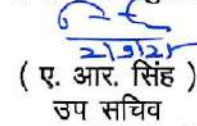 2/9/25
( ए. आर. सिंह )
उप सचिव